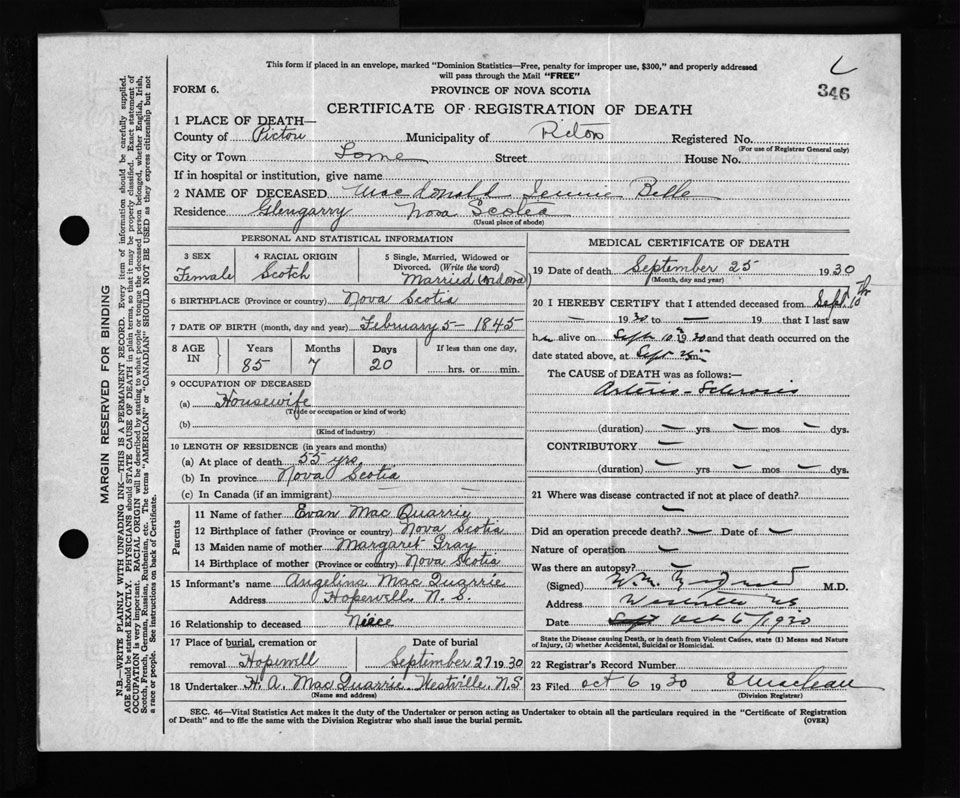 This form if placed in an envelope, marked "Dominion Statistics—Free, penalty for improper use, $300," and properly addressed
will pass through the Mail "FREE"
346
FORM 6.
PROVINCE OF NOVA SCOTIA
CERTIFICATE OF REGISTRATION OF DEATH
1 PLACE OF DEATH—
County of Pictou Municipality of Pictou Registered No.
(For use of Registrar General only)
City or Town Lorne Street House No.
If in hospital or institution, give name
2 NAME OF DECEASED MacDonald Jennie Belle
Residence Glengarry Nova Scotia
(Usual place of abode)
PERSONAL AND STATISTICAL INFORMATION
3 SEX
Female
4 RACIAL ORIGIN
Scotch
5 Single, Married, Widowed or
Divorced. (Write the word)
Married (widow)
6 BIRTHPLACE (Province or country) Nova Scotia
7 DATE OF BIRTH (month, day and year) February 5 - 1845
8 AGE IN
Years Months Days If less than one day,
85 7 20 hrs. or min.
9 OCCUPATION OF DECEASED
(a) Housewife
(Trade or occupation or kind of work)
(b)
(Kind of industry)
10 LENGTH OF RESIDENCE (in years and months)
(a) At place of death 55 yrs
(b) In province Nova Scotia
(c) In Canada (if an immigrant) — —
Parents
11 Name of father Evan Mac Quarrie
12 Birthplace of father (Province or country) Nova Scotia
13 Maiden name of mother Margaret Gray
14 Birthplace of mother (Province or country) Nova Scotia
15 Informant's name Angelina Mac Quarrie
Address Hopewell N. S.
16 Relationship to deceased Niece
17 Place of burial, cremation or Date of burial
removal Hopewell September 27 1930
18 Undertaker H. A. Mac Quarrie Westville, N.S
(Name and address)
MEDICAL CERTIFICATE OF DEATH
19 Date of death September 25 1930
(Month, day and year)
20 I HEREBY CERTIFY that I attended deceased from Sept 10th
— 1930 to — 19 that I last saw
her alive on Sept 10 1930 and that death occurred on the
date stated above, at Sept 25 m
The CAUSE of DEATH was as follows:—
Arterio-Sclerosis
(duration) — yrs — mos — dys.
CONTRIBUTORY —
(duration) — yrs — mos — dys.
21 Where was disease contracted if not at place of death?
—
Did an operation precede death? — Date of —
Nature of operation —
Was there an autopsy?
(Signed) M.D.
Address Westville NS
Date Sept Oct 6/1930
State the Disease causing Death, or in death from Violent Causes, state (1) Means and Nature
of Injury, (2) whether Accidental, Suicidal or Homicidal.
22 Registrar's Record Number
23 Filed Oct 6 1930
(Division Registrar)
SEC. 46—Vital Statistics Act makes it the duty of the Undertaker or person acting as Undertaker to obtain all the particulars required in the "Certificate of Registration
of Death" and to file the same with the Division Registrar who shall issue the burial permit.
(OVER)
MARGIN RESERVED FOR BINDING
N.B.—WRITE PLAINLY WITH UNFADING INK—THIS IS A PERMANENT RECORD. Every item of information should be carefully supplied.
AGE should be stated EXACTLY. PHYSICIANS should STATE CAUSE OF DEATH in plain terms, so that it may be properly classified. Exact statement of
OCCUPATION is very important. RACIAL ORIGIN will be described by stating to what people or tongue the deceased person belonged, whether English, Irish,
Scotch, French, German, Russian, Ruthenian, etc. The terms "AMERICAN" or "CANADIAN" SHOULD NOT BE USED as they express citizenship but not
a race or people. See instructions on back of Certificate.